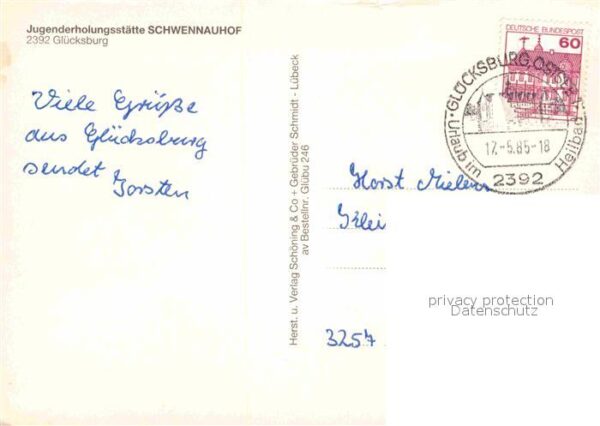 Jugenderholungsstätte SCHWENNAUHOF
2392 Glücksburg
Viele Grüße
aus Glücksburg
sendet
Torsten
Herst. u. Verlag Schöning & Co + Gebrüder Schmidt · Lübeck
av Bestellnr. Glübu 246
DEUTSCHE BUNDESPOST
60
GLÜCKSBURG, OSTSEE
Urlaub im Heilbad
17.-5.85-18
2392
Horst
3257
privacy protection
Datenschutz